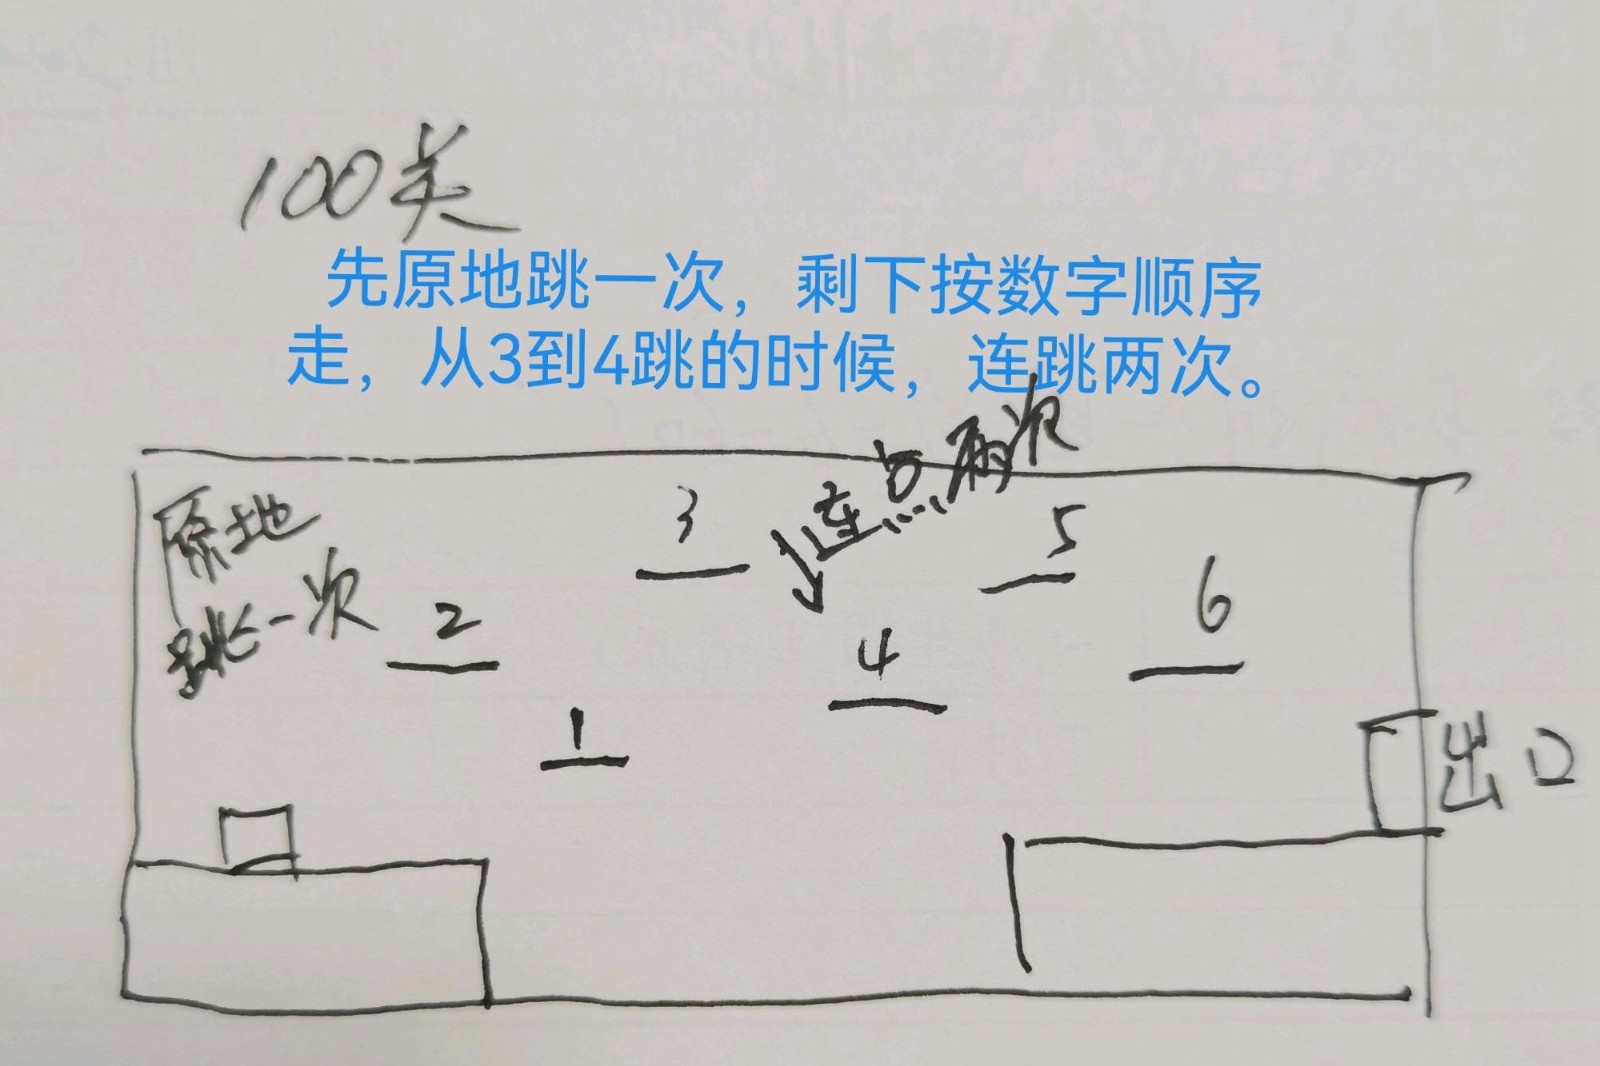 100关
先原地跳一次，剩下按数字顺序
走，从3到4跳的时候，连跳两次。
连点两次
原地
跳一次
3
5
2
6
4
1
出口